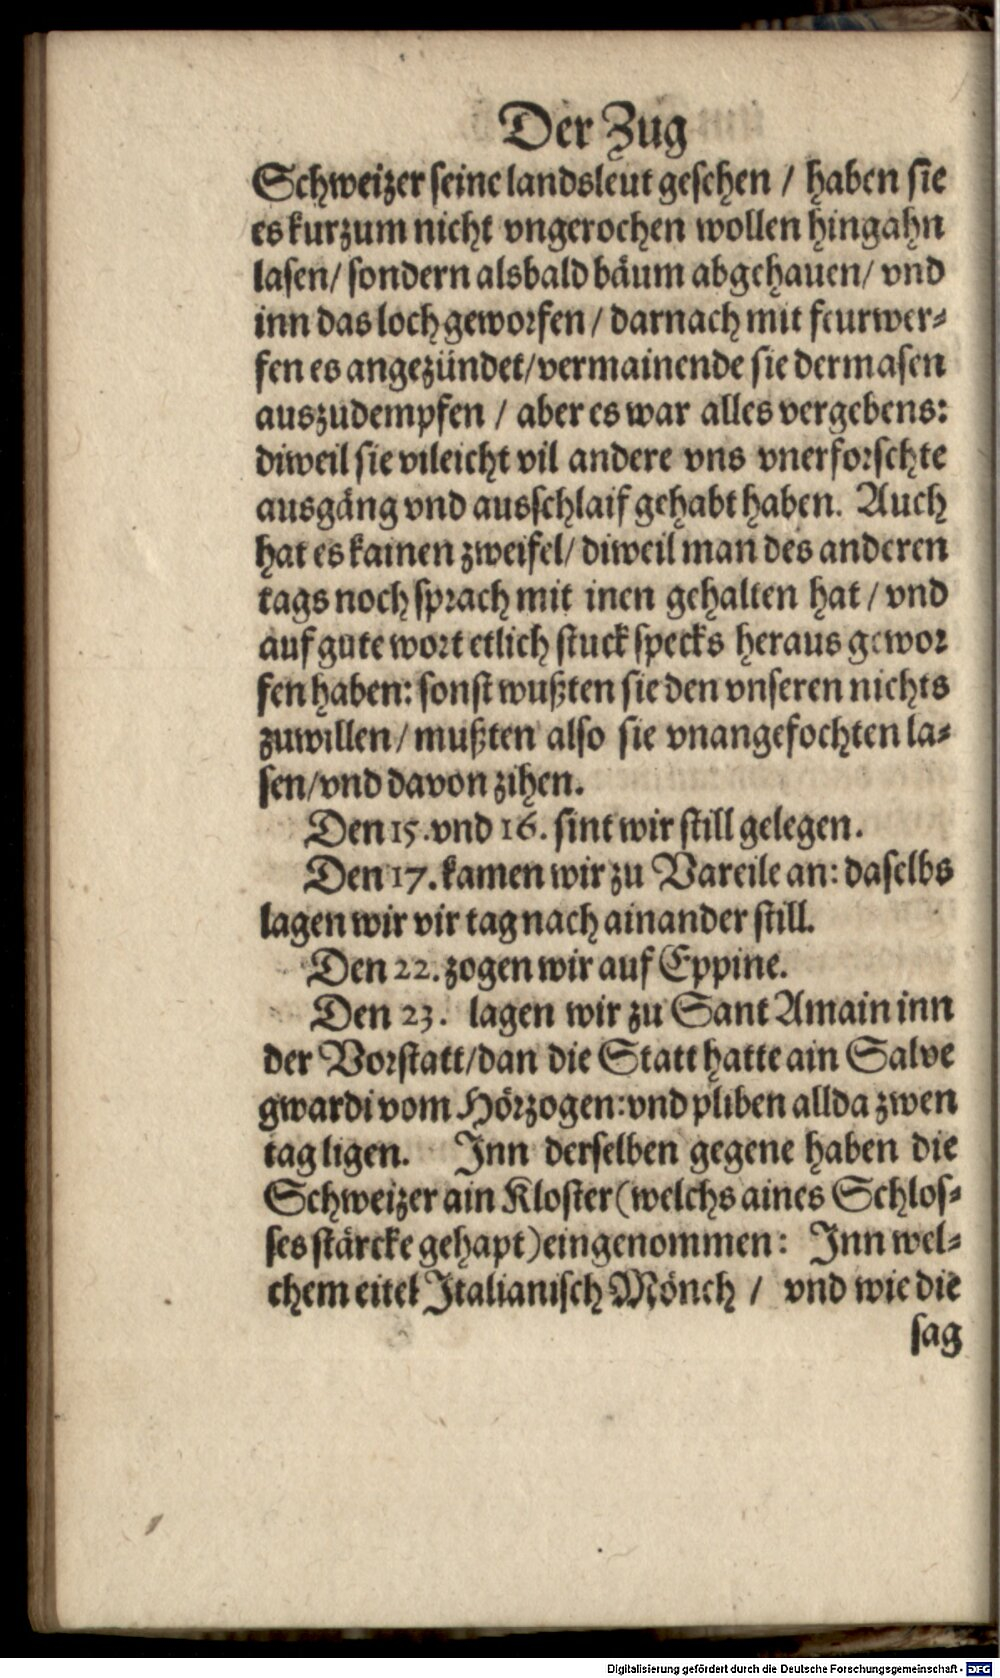 Der Zug
Schweizer seine landsleut gesehen / haben sie
es kurzum nicht vngerochen wollen hingahn
lasen / sondern alsbald bäum abgehauen / vnd
inn das loch geworfen / darnach mit feurwer⸗
fen es angezündet / vermainende sie dermasen
auszudempfen / aber es war alles vergebens:
diweil sie vileicht vil andere vns vnerforschte
ausgäng vnd ausschlaif gehabt haben. Auch
hat es kainen zweifel / diweil man des anderen
tags noch sprach mit inen gehalten hat / vnd
auf gute wort etlich stuck specks heraus gewor
fen haben: sonst wußten sie den vnseren nichts
zuwillen / mußten also sie vnangefochten la⸗
sen / vnd davon zihen.
Den 15. vnd 16. sint wir still gelegen.
Den 17. kamen wir zu Vareile an: daselbs
lagen wir vir tag nach ainander still.
Den 22. zogen wir auf Eppine.
Den 23. lagen wir zu Sant Amain inn
der Vorstatt / dan die Statt hatte ain Salve
gwardi vom Hörzogen: vnd pliben allda zwen
tag ligen. Inn derselben gegene haben die
Schweizer ain Kloster (welchs aines Schlos⸗
ses stärcke gehapt) eingenommen: Inn wel⸗
chem eitel Italianisch Mönch / vnd wie die
sag
Digitalisierung gefördert durch die Deutsche Forschungsgemeinschaft - DFG